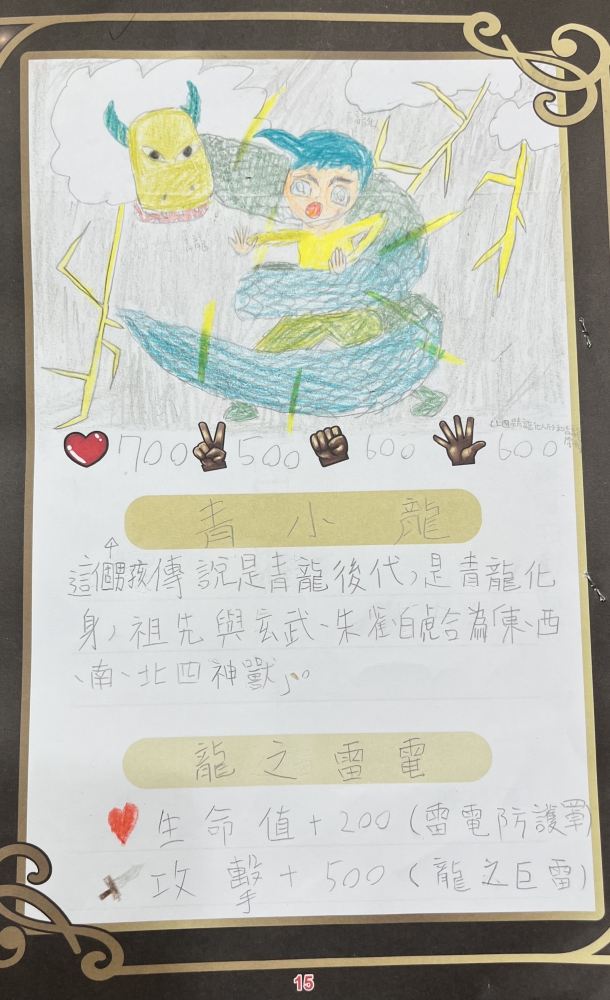 青龍
700 500 600 600
青小龍
這個男孩傳說是青龍後代，是青龍化
身，祖先與玄武、朱雀白虎合為東、西
、南、北四神獸」。
龍之雷電
生命值+200(雷電防護罩)
攻擊+500(龍之巨雷)
15